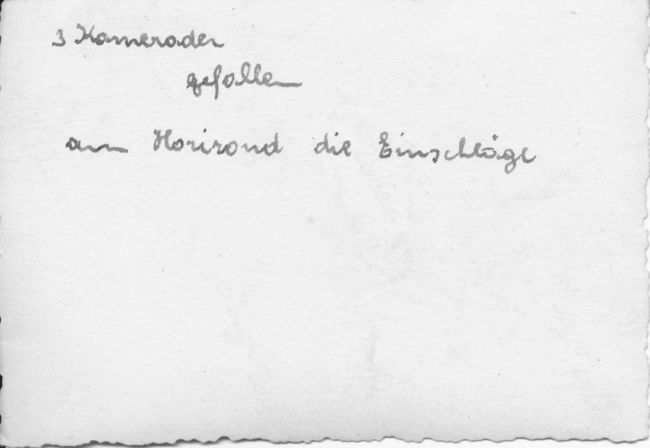 3 Kameraden
gefallen
am Horizond die Einschläge